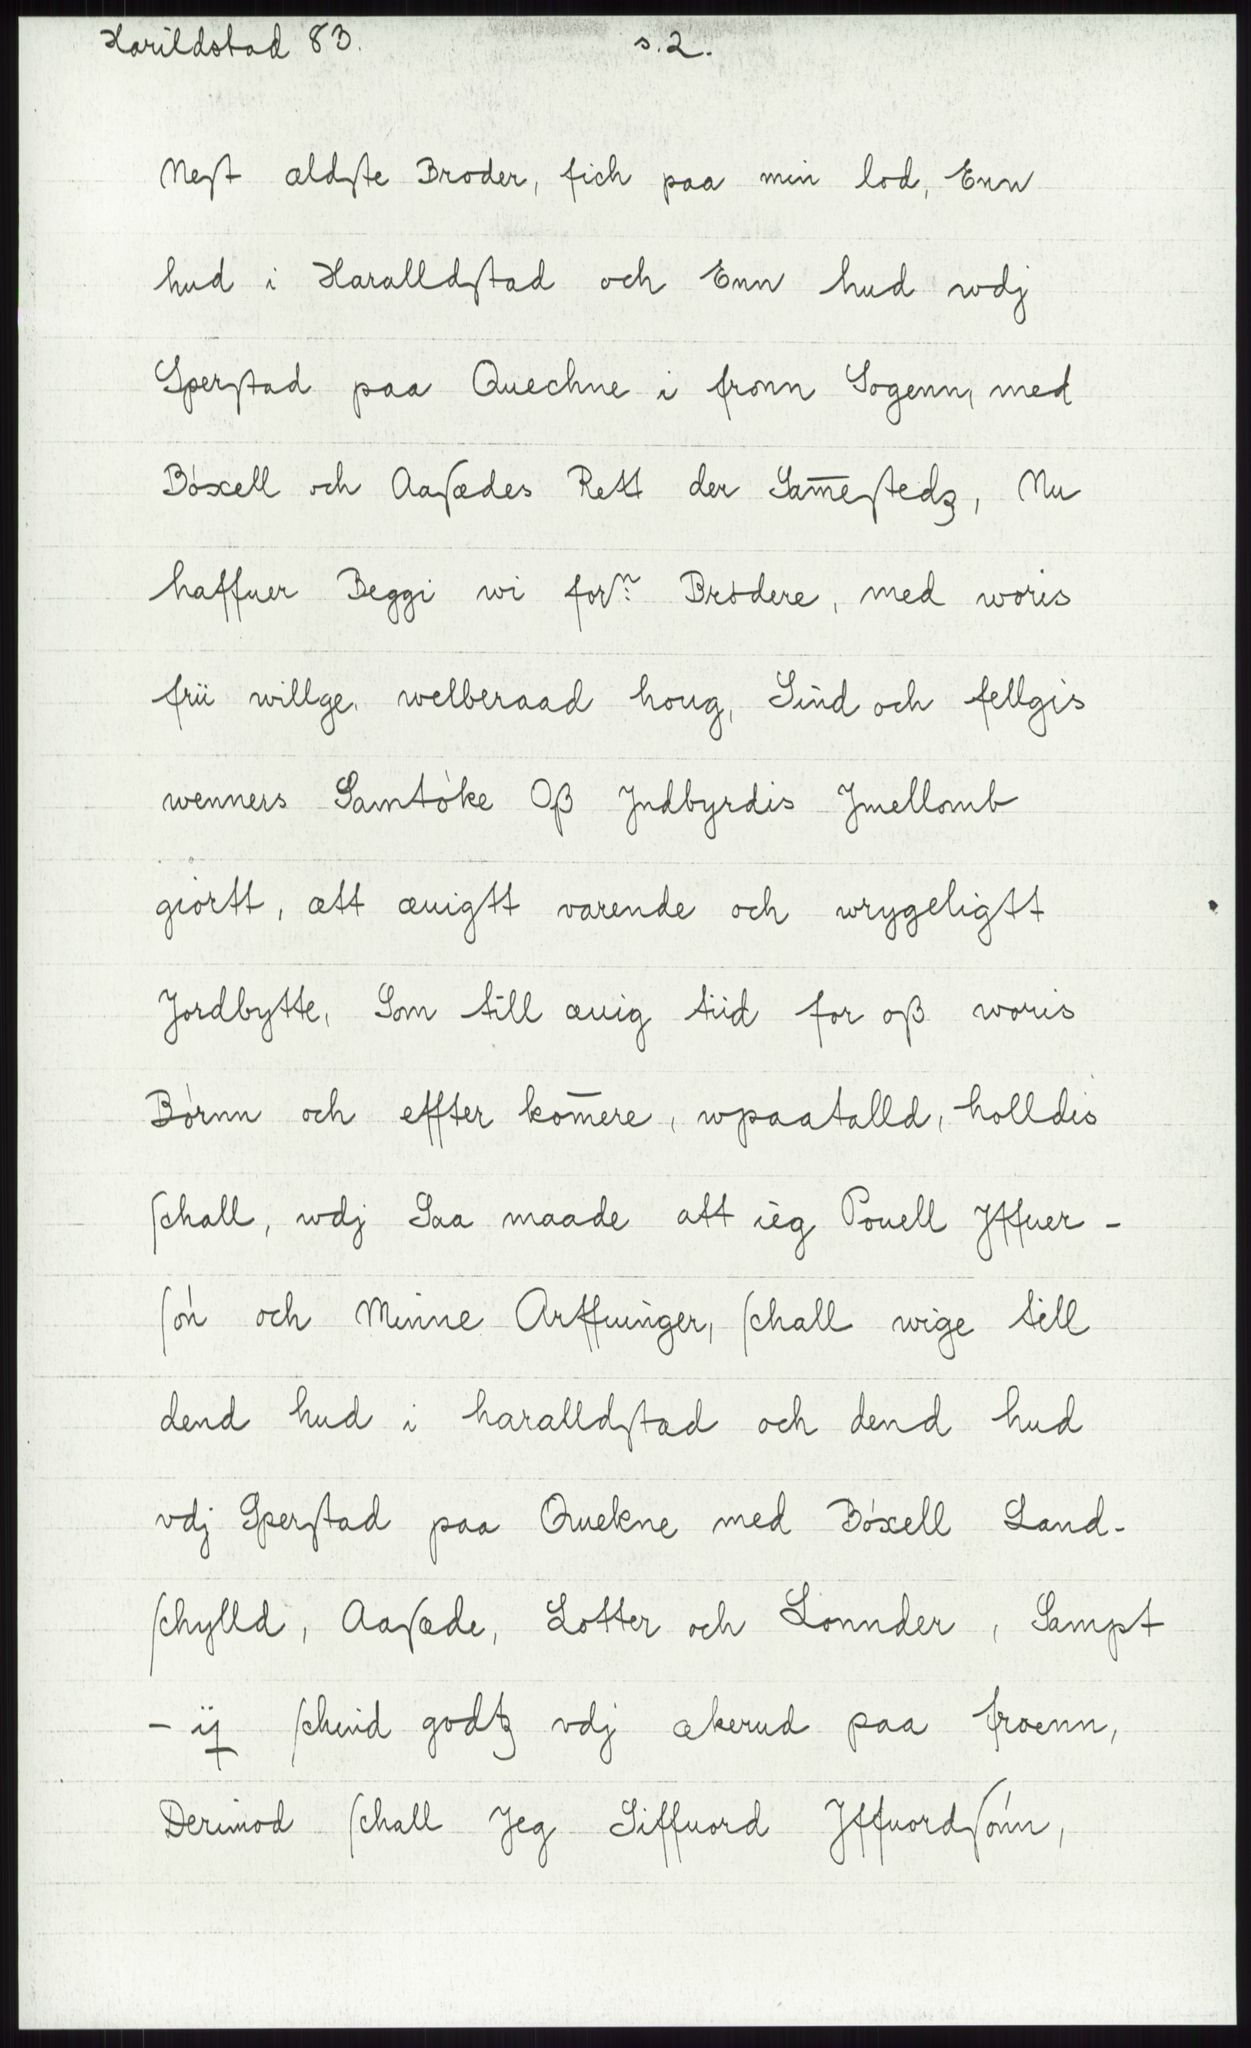 Harildstad 83. s. 2.
Nest ældste Broder, fich paa min lod, Enn
hud i Haralldstad och Enn hud wdj
Sperstad paa Quechne i fronn Sogenn, med
Bóxell och Aasædes Rett der Sam̅estedz, Nu
haffuer Beggi wi forn: Brödere, med woris
frii willge, welberaad houg, Sind och fellgis
wenners Samtöke Oß Jndbyrdis Jmellomb
giórtt, ætt æuigtt varende och wrygeligtt
Jordbytte, Som till æuig tiid for oß woris
Börnn och effter kom̅ere, wpaatalld, holldis
schall, wdj Saa maade att ieg Pouell Yffuer-
són och Minne Arffuinger, schall wige till
dend hud i haralldstad och dend hud
vdj Sperstad paa Quekne med Bóxell Land-
schylld, Aasæde, Lotter och Lonnder, Sampt
- ij schind godtz vdj ækerud paa froenn,
Derimod schall Jeg Siffuord Yffuordsónn,